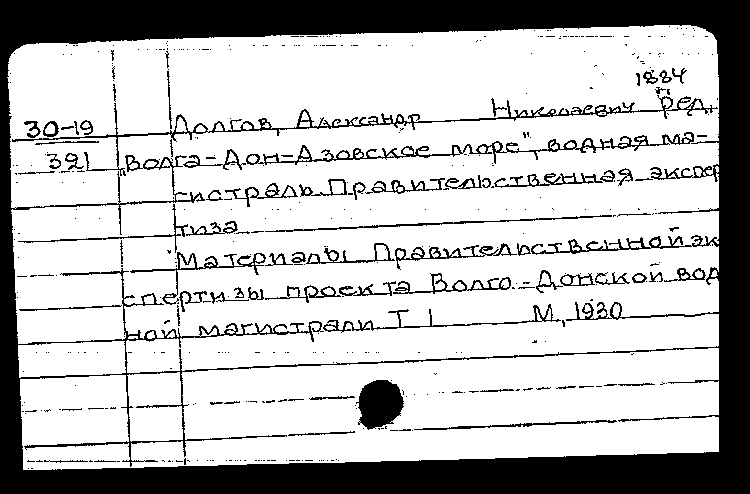 1884
30-19 Долгов, Александр Николаевич ред.
321 „Волга-Дон-Азовское море", водная ма-
гистраль. Правительственная экспер
тиза
Материалы Правительственной эк
спертизы проекта Волго-Донской вод
ной магистрали Т 1 М., 1930